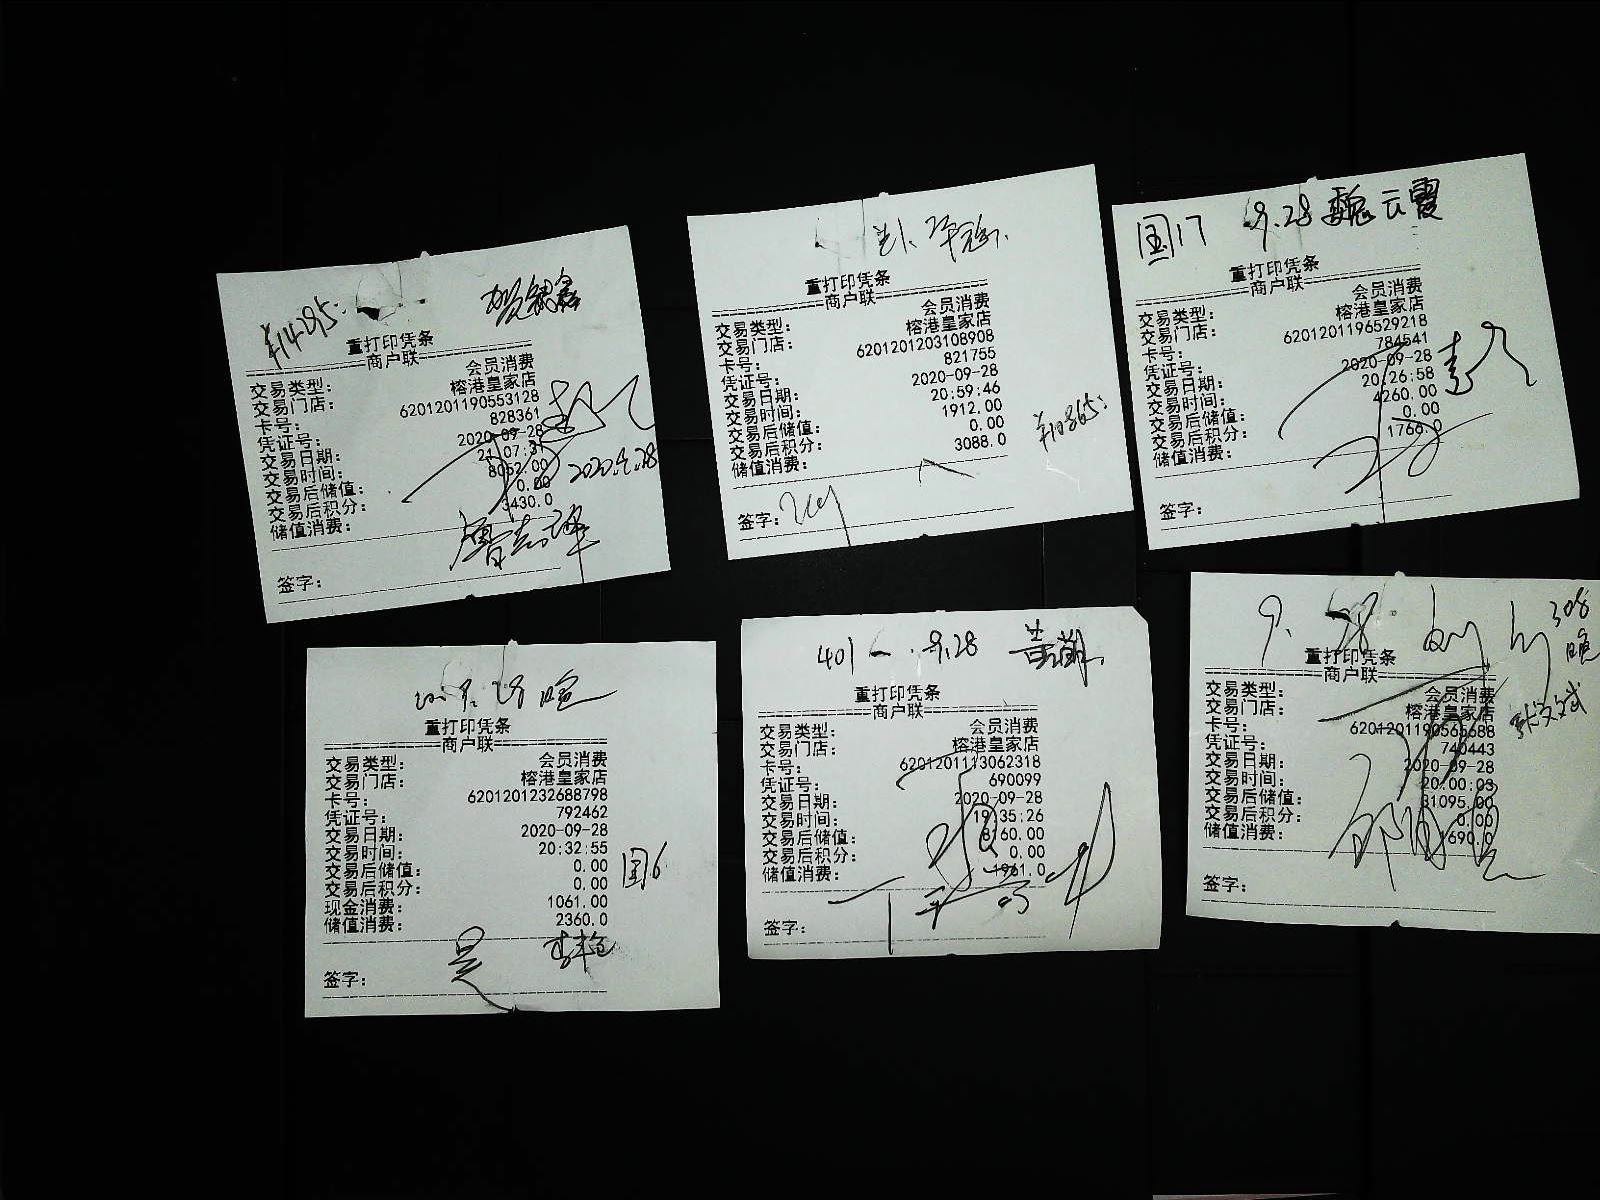 ¥14295:
重打印凭条
商户联
交易类型： 会员消费
交易门店： 榕港皇家店
卡号： 6201201190553128
凭证号： 828361
交易日期： 2020-09-28
交易时间： 21:07:31
交易后储值： 8052.00
交易后积分： 0.00
储值消费： 3430.0
2020.9.28
签字：
重打印凭条
商户联
交易类型： 会员消费
交易门店： 榕港皇家店
卡号： 6201201203108908
凭证号： 821755
交易日期： 2020-09-28
交易时间： 20:59:46
交易后储值： 1912.00
交易后积分： 0.00
储值消费： 3088.0
¥10865:
签字：
国17 9.28 魏云霞
重打印凭条
商户联
交易类型： 会员消费
交易门店： 榕港皇家店
卡号： 6201201196529218
凭证号： 784541
交易日期： 2020-09-28
交易时间： 20:26:58
交易后储值： 4260.00
交易后积分： 0.00
储值消费： 1766.0
签字：
重打印凭条
商户联
交易类型： 会员消费
交易门店： 榕港皇家店
卡号： 6201201232688798
凭证号： 792462
交易日期： 2020-09-28
交易时间： 20:32:55
交易后储值： 0.00
交易后积分： 0.00
现金消费： 1061.00
储值消费： 2360.0
国6
签字：
401 9.28
重打印凭条
商户联
交易类型： 会员消费
交易门店： 榕港皇家店
卡号： 6201201113062318
凭证号： 690099
交易日期： 2020-09-28
交易时间： 19:35:26
交易后储值： 8160.00
交易后积分： 0.00
储值消费： 1961.0
签字：
9. 28 308
重打印凭条
商户联
交易类型： 会员消费
交易门店： 榕港皇家店
卡号： 6201201190565688
凭证号： 740443
交易日期： 2020-09-28
交易时间： 20:00:03
交易后储值： 31095.00
交易后积分： 0.00
储值消费： 1690.0
签字：